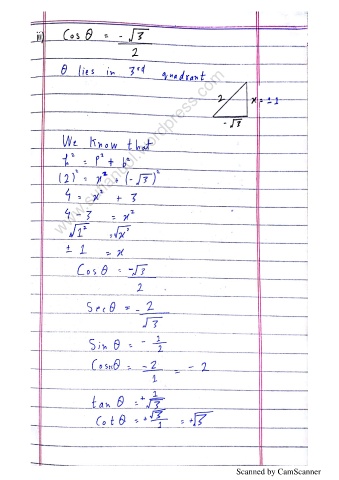 ii) Cosθ = -√3/2
θ lies in 3rd quadrant
2 x = ±1
-√3
We know that
h² = p² + b²
(2)² = x² + (-√3)²
4 = x² + 3
4 - 3 = x²
√1² = √x²
± 1 = x
Cosθ = -√3/2
Secθ = -2/√3
Sinθ = -1/2
Cosnθ = -2/1 = -2
tanθ = +1/√3
Cotθ = +√3/1 = +√3
Scanned by CamScanner